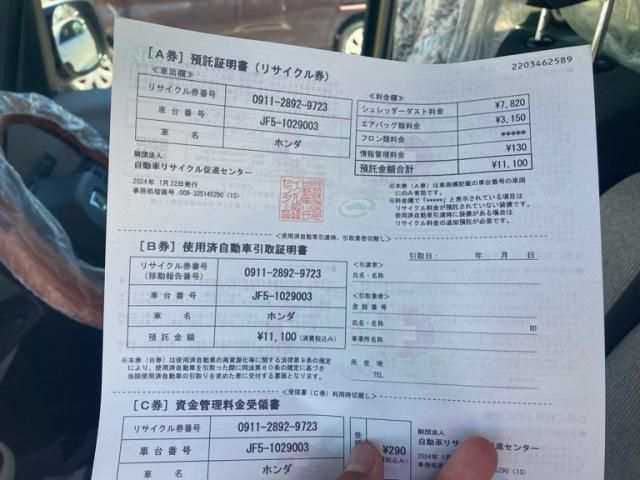 2203462589
[A券] 預託証明書(リサイクル券)
≪車両欄≫
リサイクル券番号 0911-2892-9723
車台番号 JF5-1029003
車名 ホンダ
財団法人
自動車リサイクル促進センター
2024年 1月22日発行
事務処理番号:009-335145290<1S>
≪料金欄≫
シュレッダーダスト料金 ¥7,820
エアバッグ類料金 ¥3,150
フロン類料金 *****
情報管理料金 ¥130
預託金額合計 ¥11,100
※本券(A券)は車両欄記載の車台番号の車両
にのみ有効です。
※料金欄で「*****」と表示されている項目は
リサイクル料金が預託されていない装備です。
使用済自動車引渡時に装備がある場合は
リサイクル料金の追加預託が必要です。
使用済自動車引渡時、引取業者切離し
[B券] 使用済自動車引取証明書
引取日: 年 月 日
リサイクル券番号
(移動報告番号) 0911-2892-9723
車台番号 JF5-1029003
車名 ホンダ
預託金額 ¥11,100 (消費税込み)
≪引渡者≫
氏名・名称
≪引取業者≫
登録番号
氏名・名称
ID
事業所名
所在地
TEL
※本券(B券)は使用済自動車の再資源化等に関する法律第9条の規定
により、使用済自動車を引取った際に同法第80条の規定に基づき
当該使用済自動車の引取りを求めた者に交付する書面となります。
<受領書(C券)利用時切離し>
[C券] 資金管理料金受領書
リサイクル券番号 0911-2892-9723
車台番号 JF5-1029003
車名 ホンダ
¥290
財団法人